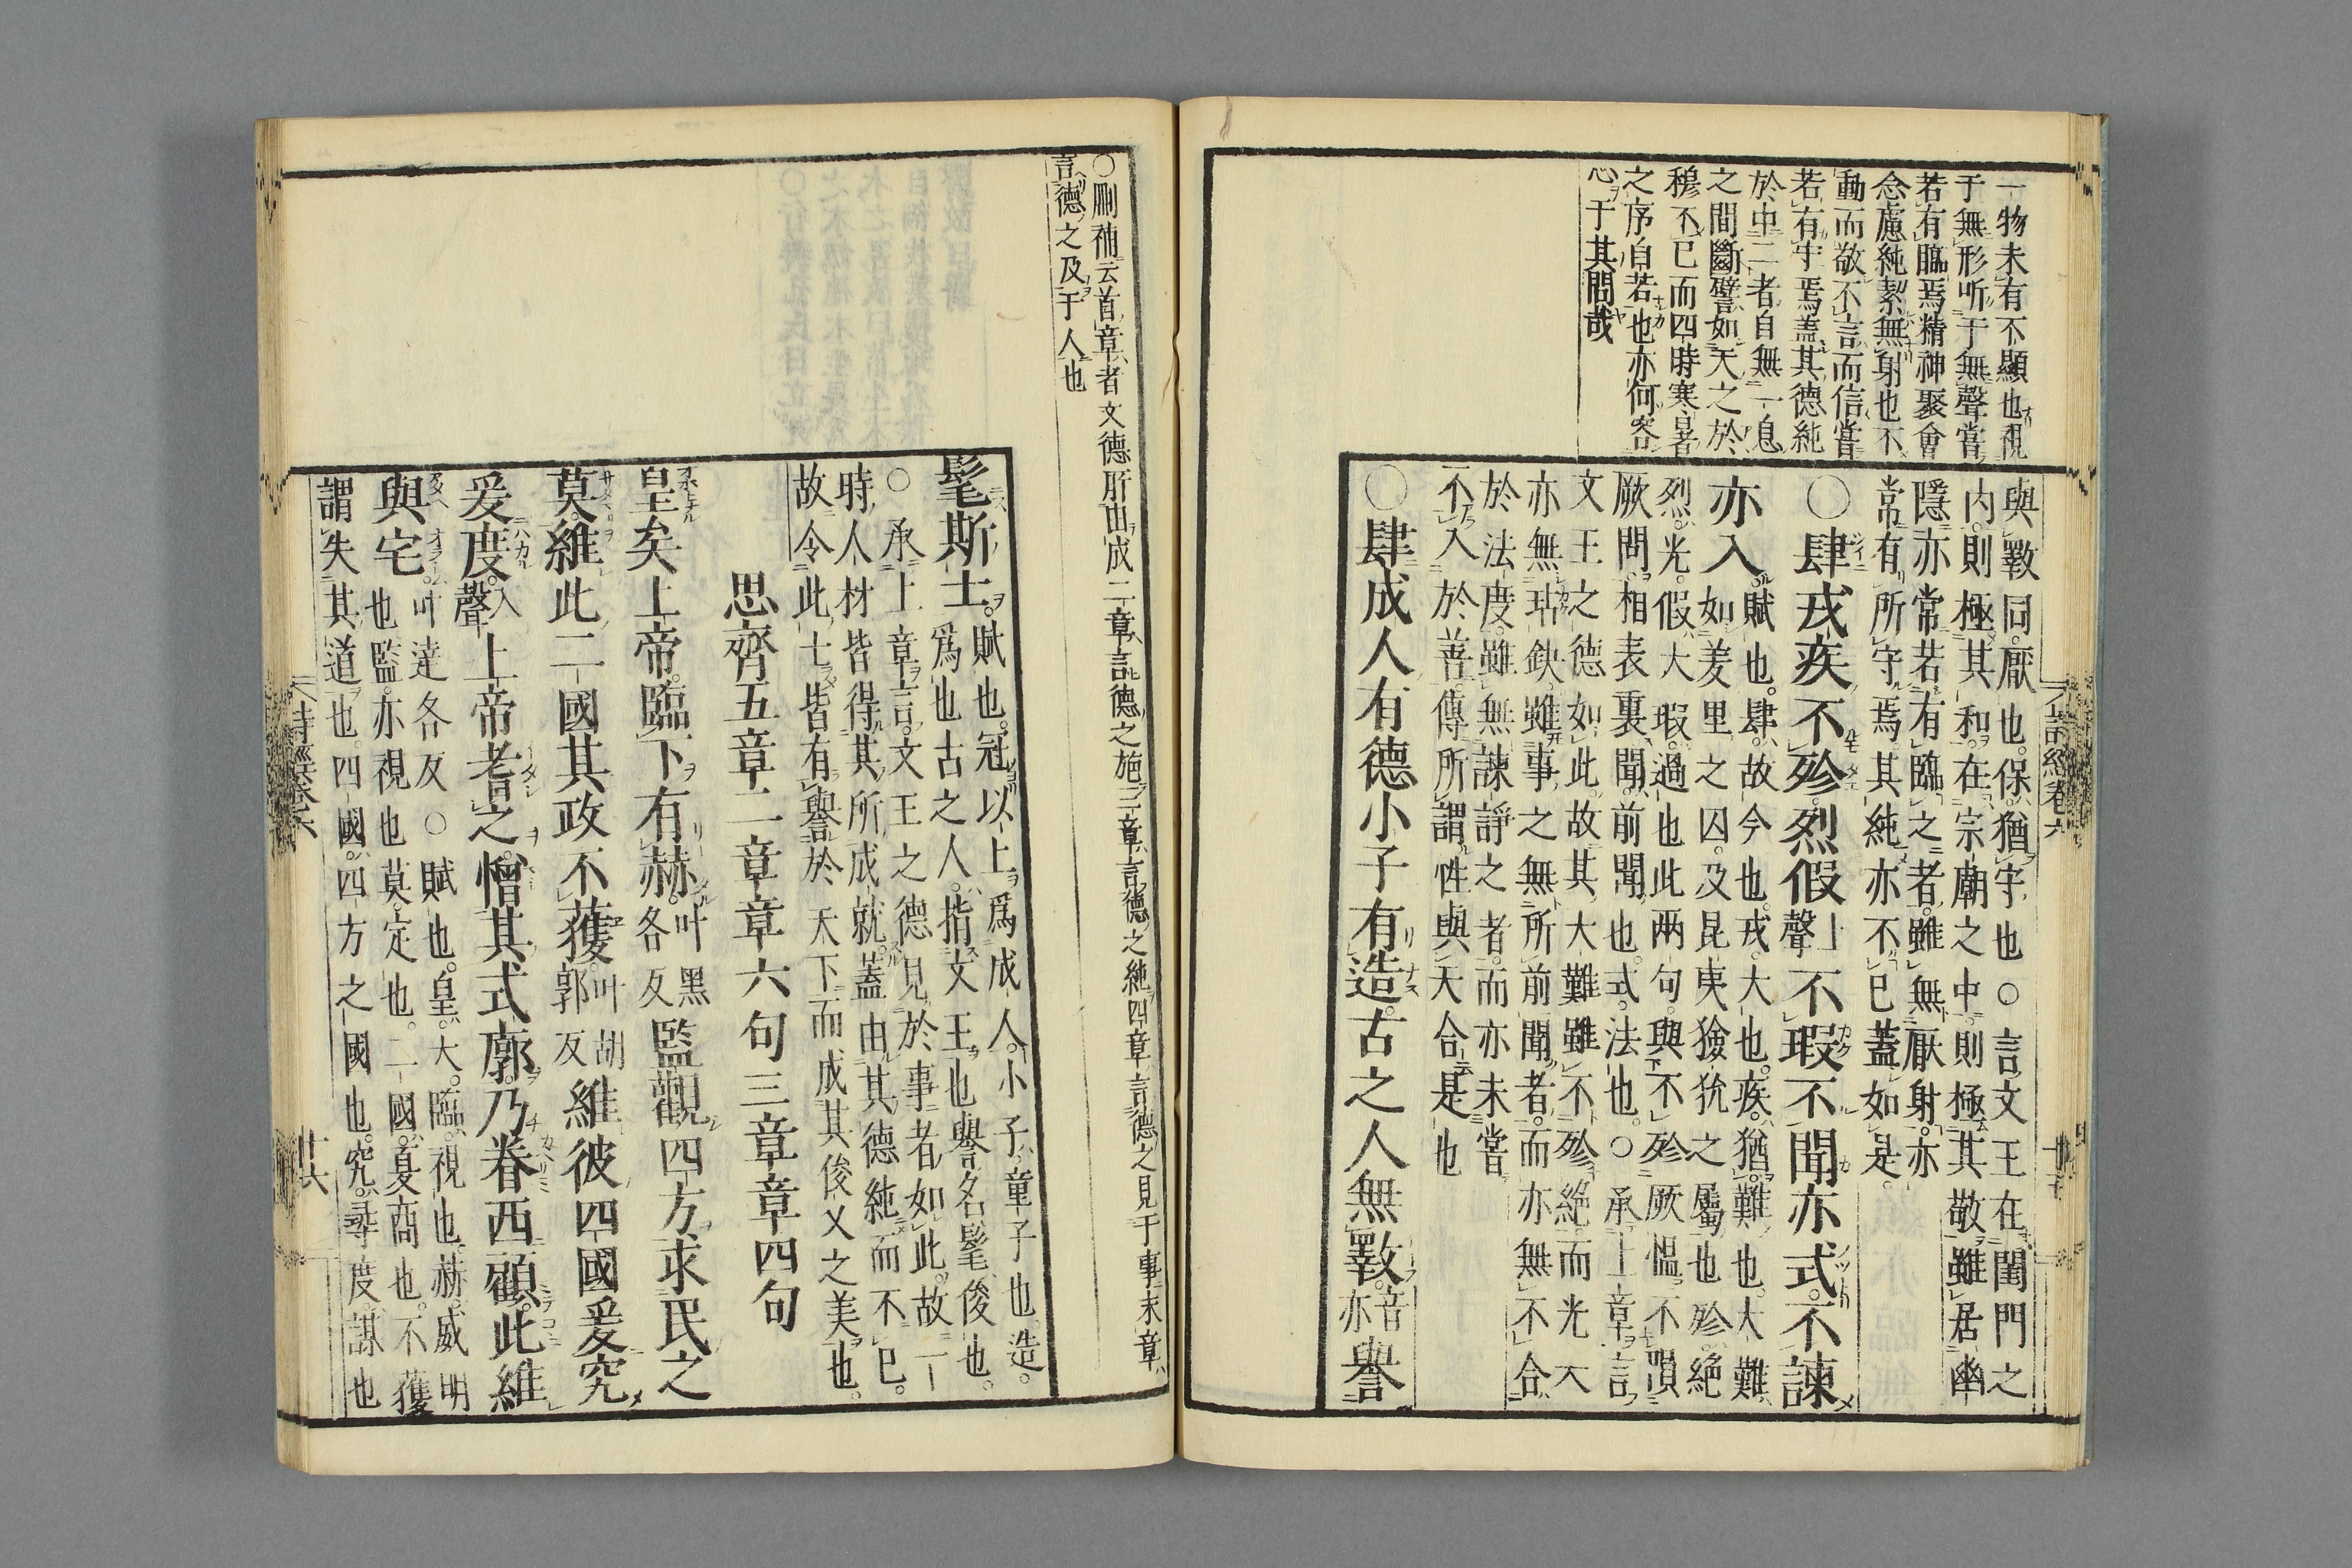 一物未有不顯也視
于無形听于無聲嘗
若有臨焉精神聚會
念慮純絜無射也不
動而敬不言而信嘗
若有守焉蓋其德純
於中二者自無一息
之間斷譬如天之於
穆不已而四時寒暑
之序自若也亦何容
心于其間哉
與斁同厭也保猶守也○言文王在閨門之
内則極其和在宗廟之中則極其敬雖居幽
隱亦常若有臨之者雖無厭射亦
常有所守焉其純亦不已蓋如是
○肆戎疾不殄烈假上聲不瑕不聞亦式不諫
亦入賦也肆故今也戎大也疾猶難也大難
如羑里之囚及昆夷獫狁之屬也殄絕
烈光假大瑕過也此兩句與不殄厥愠不隕
厥問相表裏聞前聞也式法也○承上章言
文王之德如此故其大難雖不殄絕而光大
亦無玷缺雖事之無所前聞者而亦無不合
於法度雖無諫諍之者而亦未嘗
不入於善傳所謂性與天合是也
○肆成人有德小子有造古之人無斁音亦譽
詩經卷六
○刪補云首章者文德所由成二章言德之施三章言德之純四章言德之見于事末章
言德之及于人也
髦斯士賦也冠以上爲成人小子童子也造
爲也古之人指文王也譽名髦俊也
○承上章言文王之德見於事者如此故一
時人材皆得其所成就蓋由其德純而不已
故令此士皆有譽於天下而成其俊乂之美也
思齊五章二章章六句三章章四句
皇矣上帝臨下有赫叶黑各反監觀四方求民之
莫維此二國其政不獲叶胡郭反維彼四國爰究
爰度入聲上帝耆之憎其式廓乃眷西顧此維
與宅叶達各反○賦也皇大臨視也赫威明
也監亦視也莫定也二國夏商也不獲
謂失其道也四國四方之國也究尋度謀也
詩經卷六
十六